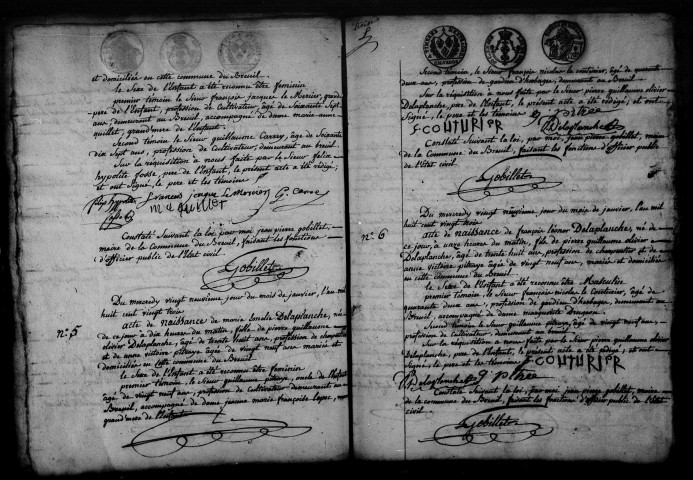 et domiciliée en cette commune du Breuil.
le Sexe de l'Enfant a été reconnu être feminin
premier témoin le Sieur françois jacques le Mercier, grand
pere de l'Enfant, profession de Cultivateur, âgé de Soixante Sept
ans, demeurant au Breuil, accompagné de dame marie anne
quillet, grandmere de l'enfant.
Second témoin le Sieur guillaume Carrey, âgé de Soixante
dix Sept ans, profession de Cultivateur, demeurant au breuil.
Sur la réquisition à nous faite par le Sieur felix
hypolite fosse, pere de l'Enfant, le présent acte a été rédigé,
et ont Signé, le pere et les témoins
francois jaque le Mercier
m a quillet
Constaté Suivant la loi, par moi jean pierre gobillet,
maire de la Commune du Breuil, faisant les fonctions
d'officier public de l'état civil.
Gobillet
Du mercredy vingt neuvieme jour du mois de janvier, l'an mil
huit cent vingt trois
n° 5
acte de naissance de marie Emelie Delaplanche, née
de ce jour, à dix heures du matin, fille de pierre guillaume
olivier Delaplanche, âgé de trente huit ans, profession de charpentier
et de anne victoire pitray, âgée de vingt neuf ans, mariés et
domiciliés en cette commune du Breuil
le Sexe de l'Enfant a été reconnu être feminin
premier témoin, le Sieur guillaume pitray, oncle de l'Enfant
âgé de vingt neuf ans, profession de Cultivateur demeurant au
Breuil, accompagné de dame jeanne marie françoise
grand mere de l'Enfant
Second témoin, le Sieur françois nicolas le Couturier, âgé de quarante
deux ans, profession de gardien d'herbage, demeurant au Breuil
Sur la réquisition à nous faite par le Sieur pierre guillaume olivier
Delaplanche, pere de l'Enfant, le présent acte a été rédigé, et ont
Signé, le pere et les témoins
COUTURIER
Delaplanche
Constaté Suivant la loi, par moi, jean pierre gobillet, maire
de la Commune du Breuil, faisant les fonctions d'officier public de
l'état civil
Gobillet
Du mercredy vingt neuvieme jour du mois de janvier, l'an mil
huit cent vingt trois
n° 6
acte de naissance de françois Léonor Delaplanche, né de
ce jour, à onze heures du matin, fils de pierre guillaume olivier
Delaplanche, âgé de trente huit ans, profession de charpentier et de
anne victoire pitray âgée de vingt neuf ans, mariés et domiciliés
en cette commune du Breuil
le Sexe de l'Enfant a été reconnu être Masculin
premier témoin, le Sieur françois nicolas le Couturier, âgé de
quarante deux ans, profession de gardien d'herbage, demeurant au
Breuil, accompagné de dame marguerite
Second témoin le Sieur guillaume pitray âgé de vingt neuf ans,
profession de cultivateur
Sur la réquisition à nous faite par le Sieur pierre guillaume olivier
Delaplanche, pere de l'Enfant, le présent acte a été rédigé, et ont
Signé, le pere et les témoins
COUTURIER
Delaplanche
Constaté Suivant la loi, par moi, jean pierre gobillet, maire
de la commune du Breuil, faisant les fonctions d'officier public de l'état
civil
Gobillet